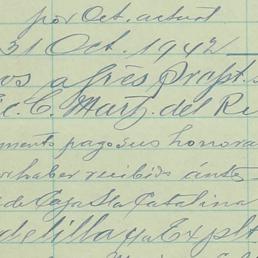 por Oct. actual
31 Oct. 1942
os a frès Propt.
ic. C. Marz. del R
mento pago sus honora
haber recibido antes
de Caja Sta Catalina
delilla ya Explt